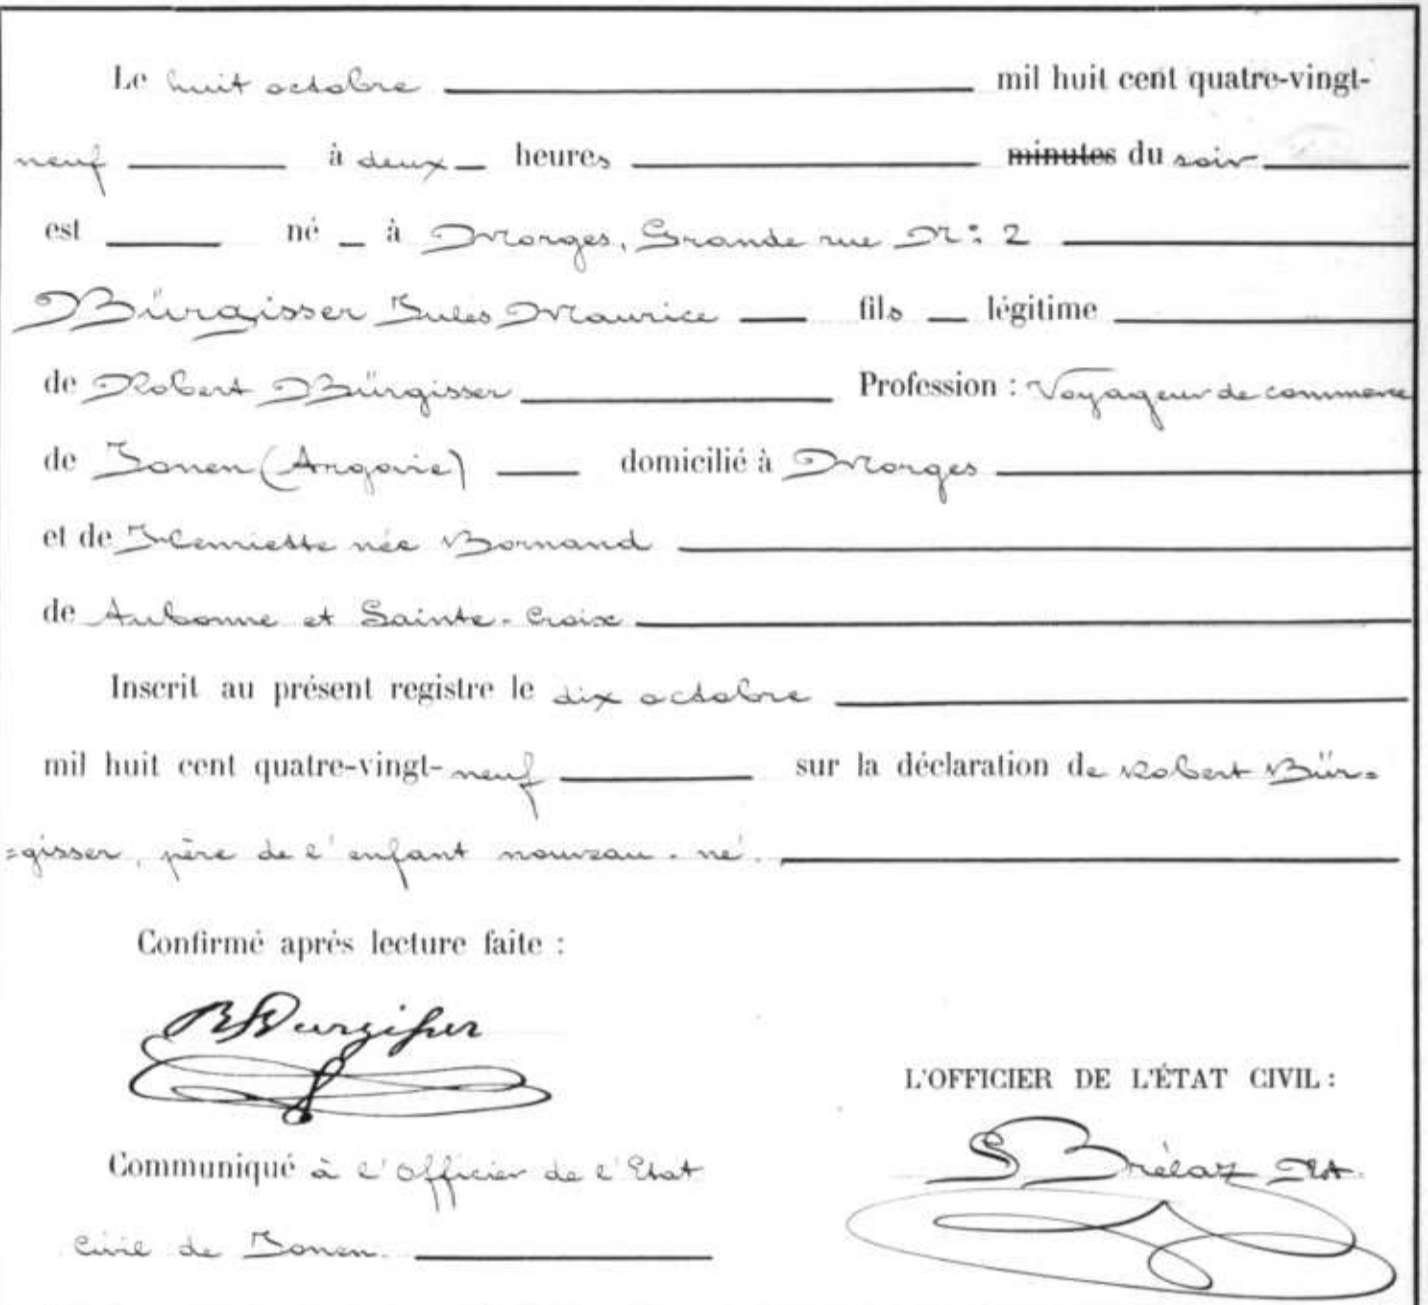 Le huit octobre mil huit cent quatre-vingt-
neuf à deux heures minutes du soir
est né à Morges, Grande rue N: 2
Bürgisser Jules Maurice fils légitime
de Robert Bürgisser Profession : Voyageur de commerce
de Jonen (Argovie) domicilié à Morges
et de Henriette née Bornand
de Aubonne et Sainte-Croix
Inscrit au présent registre le dix octobre
mil huit cent quatre-vingt-neuf sur la déclaration de Robert Bür=
=gisser, père de l'enfant nouveau-né.
Confirmé après lecture faite :
RBurgisser
L'OFFICIER DE L'ÉTAT CIVIL :
S Brélaz
Communiqué à l'Officier de l'Etat
Civil de Jonen.